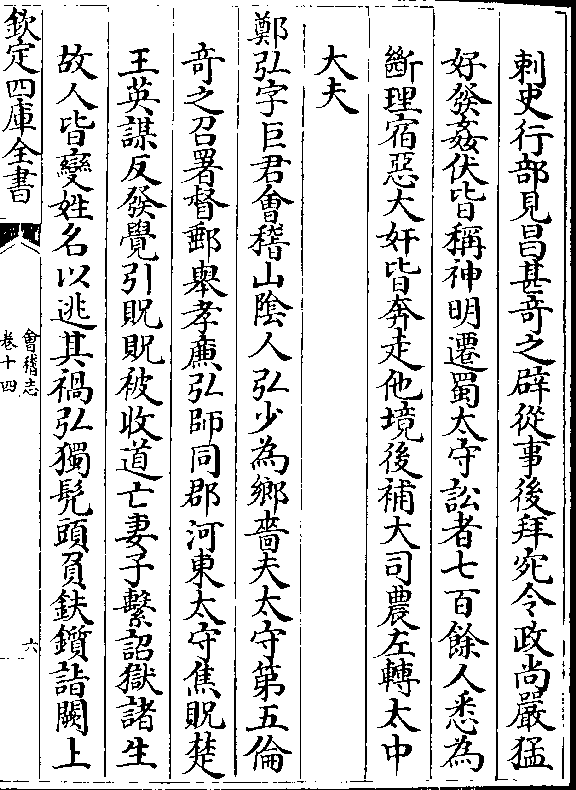 刺史行部見昌甚竒之辟從事後拜宛令政尚嚴猛
好發姦伏皆稱神明遷蜀太守訟者七百餘人悉為
斷理宿惡大奸皆奔走他境後補大司農左轉太中
大夫
鄭弘字巨君會稽山陰人弘少為鄉嗇夫太守第五倫
竒之召署督郵舉孝廉弘師同郡河東太守焦貺楚
王英謀反發覺引貺貺被收道亡妻子繫詔獄諸生
故人皆變姓名以逃其禍弘獨髠頭負鈇鑕詣闕上
欽定四庫全書
會稽志
卷十四
六